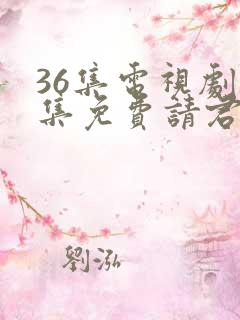 36集电視劇
集免費請君
劉泓